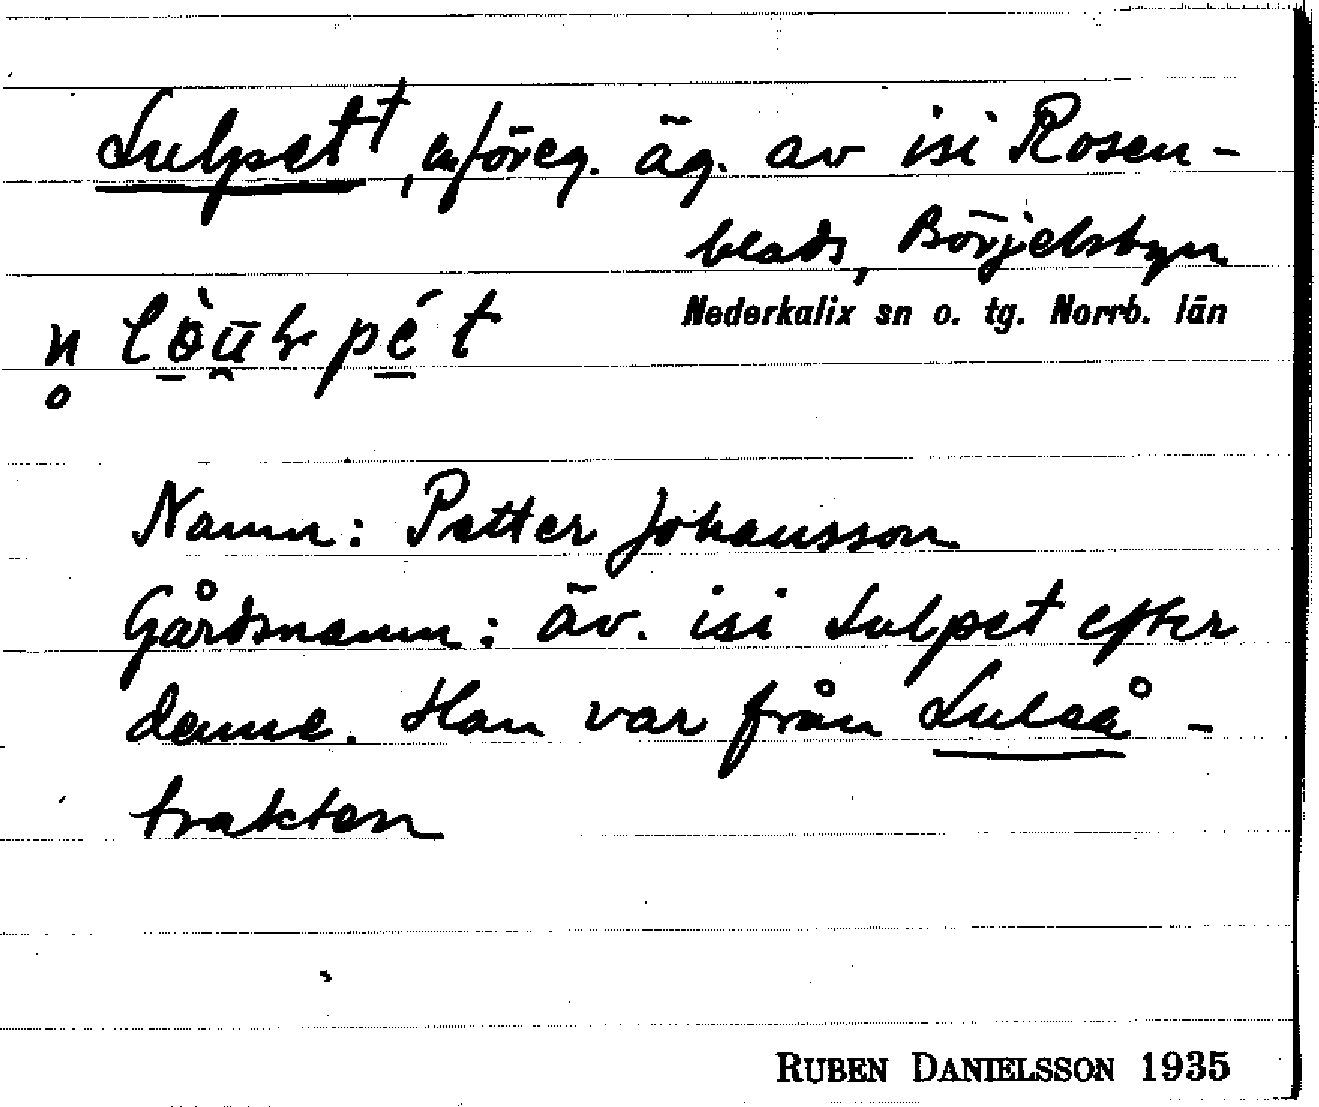 Lulpet†, en föreg. äg. av isi Rosen-
blads, Börjelsbyn
Nederkalix sn o. tg. Norrb. län
Namn: Petter Johansson
Gårdsnamn: äv. isi Lulpet efter
denne. Han var från Luleå-
trakten
RUBEN DANIELSSON 1935